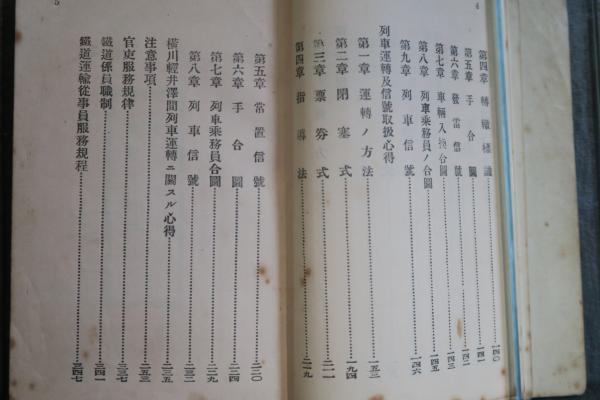 4
第四章 轉轍標識 一四〇
第五章 手合圖 一四一
第六章 發雷信號 一四二
第七章 車輛入換合圖 一四三
第八章 列車乘務員ノ合圖 一四四
第九章 列車信號 一四六
列車運轉及信號取扱心得
第一章 運轉ノ方法 一五三
第二章 閉塞式 一九四
第三章 票券式 二一一
第四章 指導法 二一九
5
第五章 常置信號 二二〇
第六章 手合圖 二二四
第七章 列車乘務員合圖 二二九
第八章 列車信號 二三二
橫川輕井澤間列車運轉ニ關スル心得 二三五
注意事項 二五三
官吏服務規律 二三七
鐵道係員職制 二四一
鐵道運輸從事員服務規程 二四七